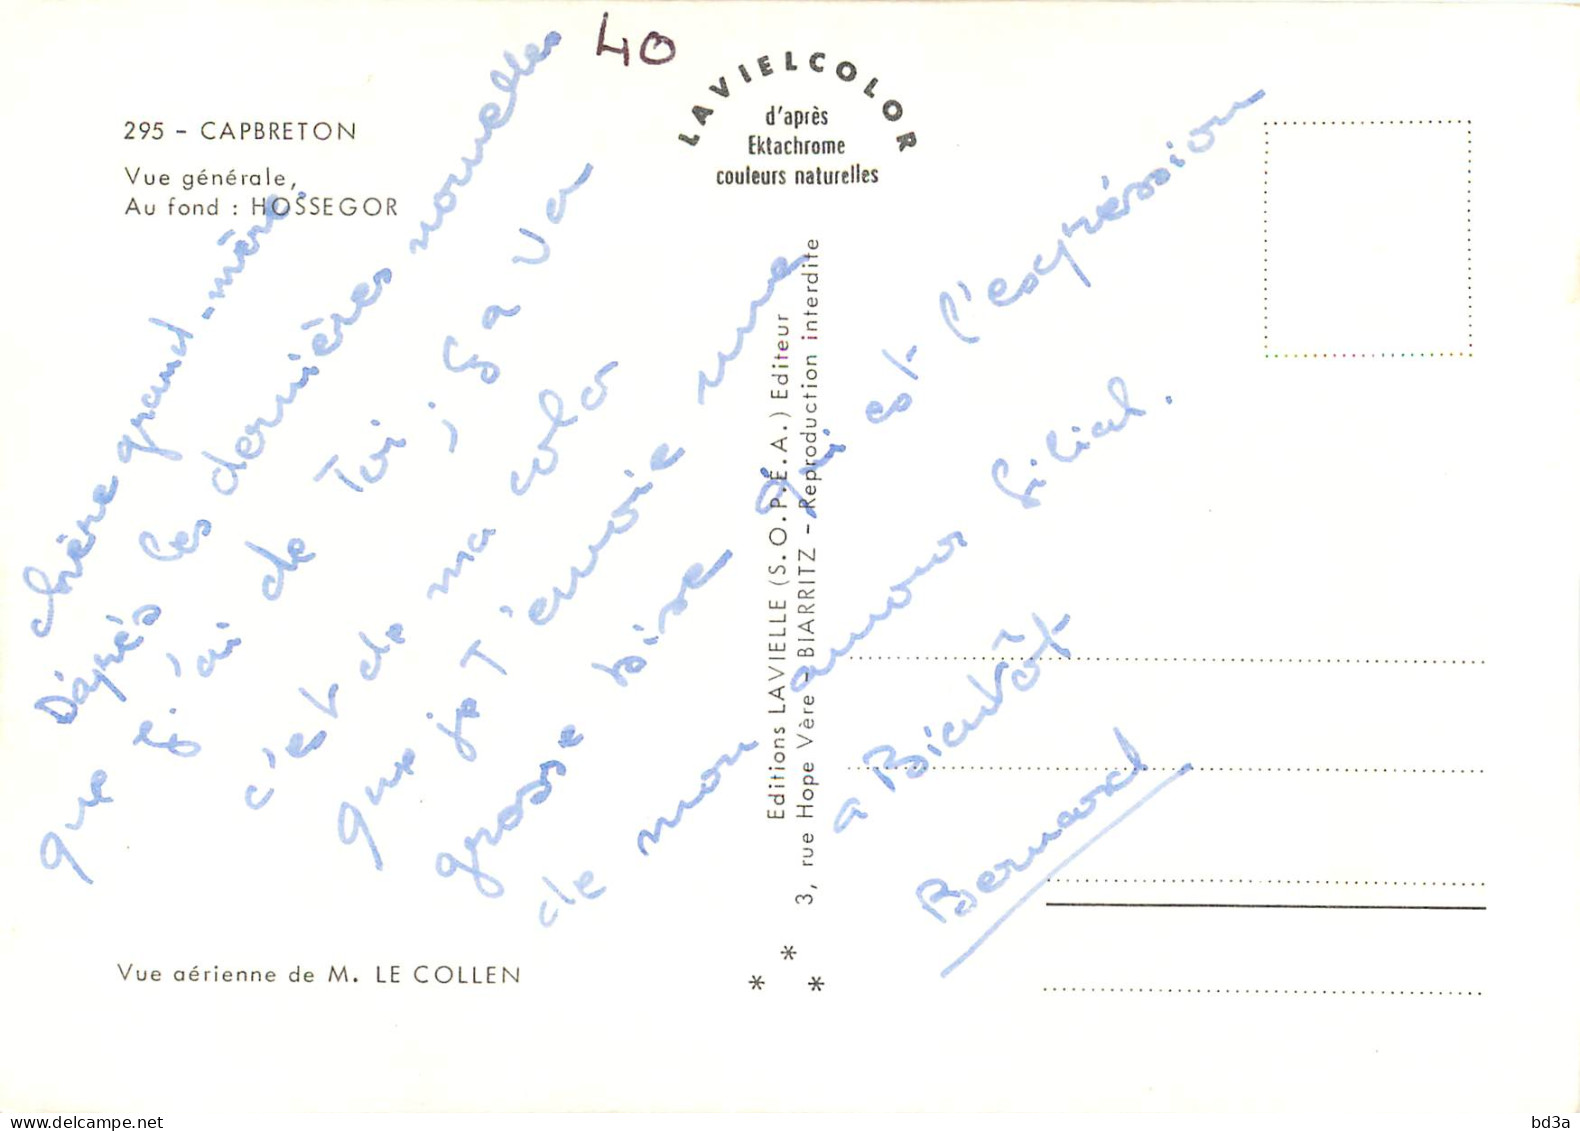 40
LAVIELCOLOR
d'après
Ektachrome
couleurs naturelles
295 - CAPBRETON
Vue générale,
Au fond : HOSSEGOR
chère grand-mère.
D'après les dernières nouvelles
que j'ai de Toi, ça va
c'est de ma colo
que je T'envoie une
grosse bise qui est l'expression
de mon amour filial.
a Bientôt
Bernard
Editions LAVIELLE (S.O.P.E.A.) Editeur
3, rue Hope Vère - BIARRITZ - Reproduction interdite
Vue aérienne de M. LE COLLEN
* * *
www.delcampe.net
bd3a